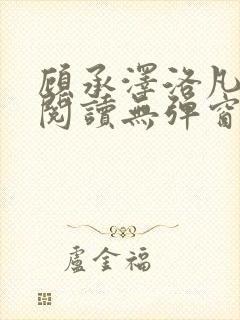 顧承澤洛凡
閱讀無彈窗
盧金福